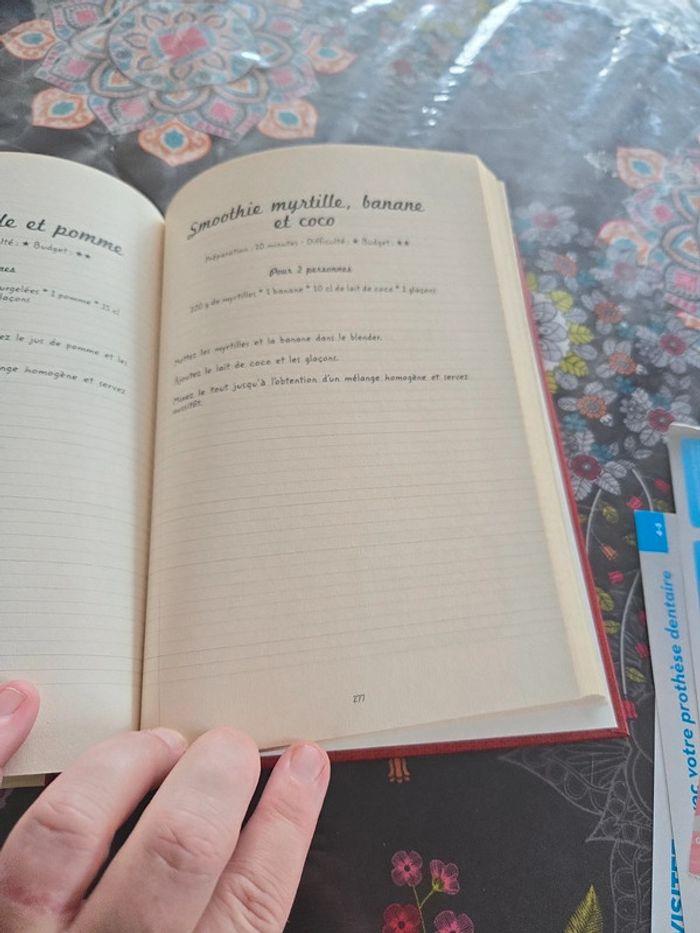 le et pomme
lté : ★ Budget : ★★
urgelées * 1 pomme * 15 cl
glaçons
ez le jus de pomme et les
nge homogène et servez
Smoothie myrtille, banane
et coco
Préparation : 10 minutes - Difficulté : ★ Budget : ★★
Pour 2 personnes
200 g de myrtilles * 1 banane * 10 cl de lait de coco * 2 glaçons
Mettez les myrtilles et la banane dans le blender.
Ajoutez le lait de coco et les glaçons.
Mixez le tout jusqu'à l'obtention d'un mélange homogène et servez
aussitôt.
277
4-5
votre prothèse dentaire